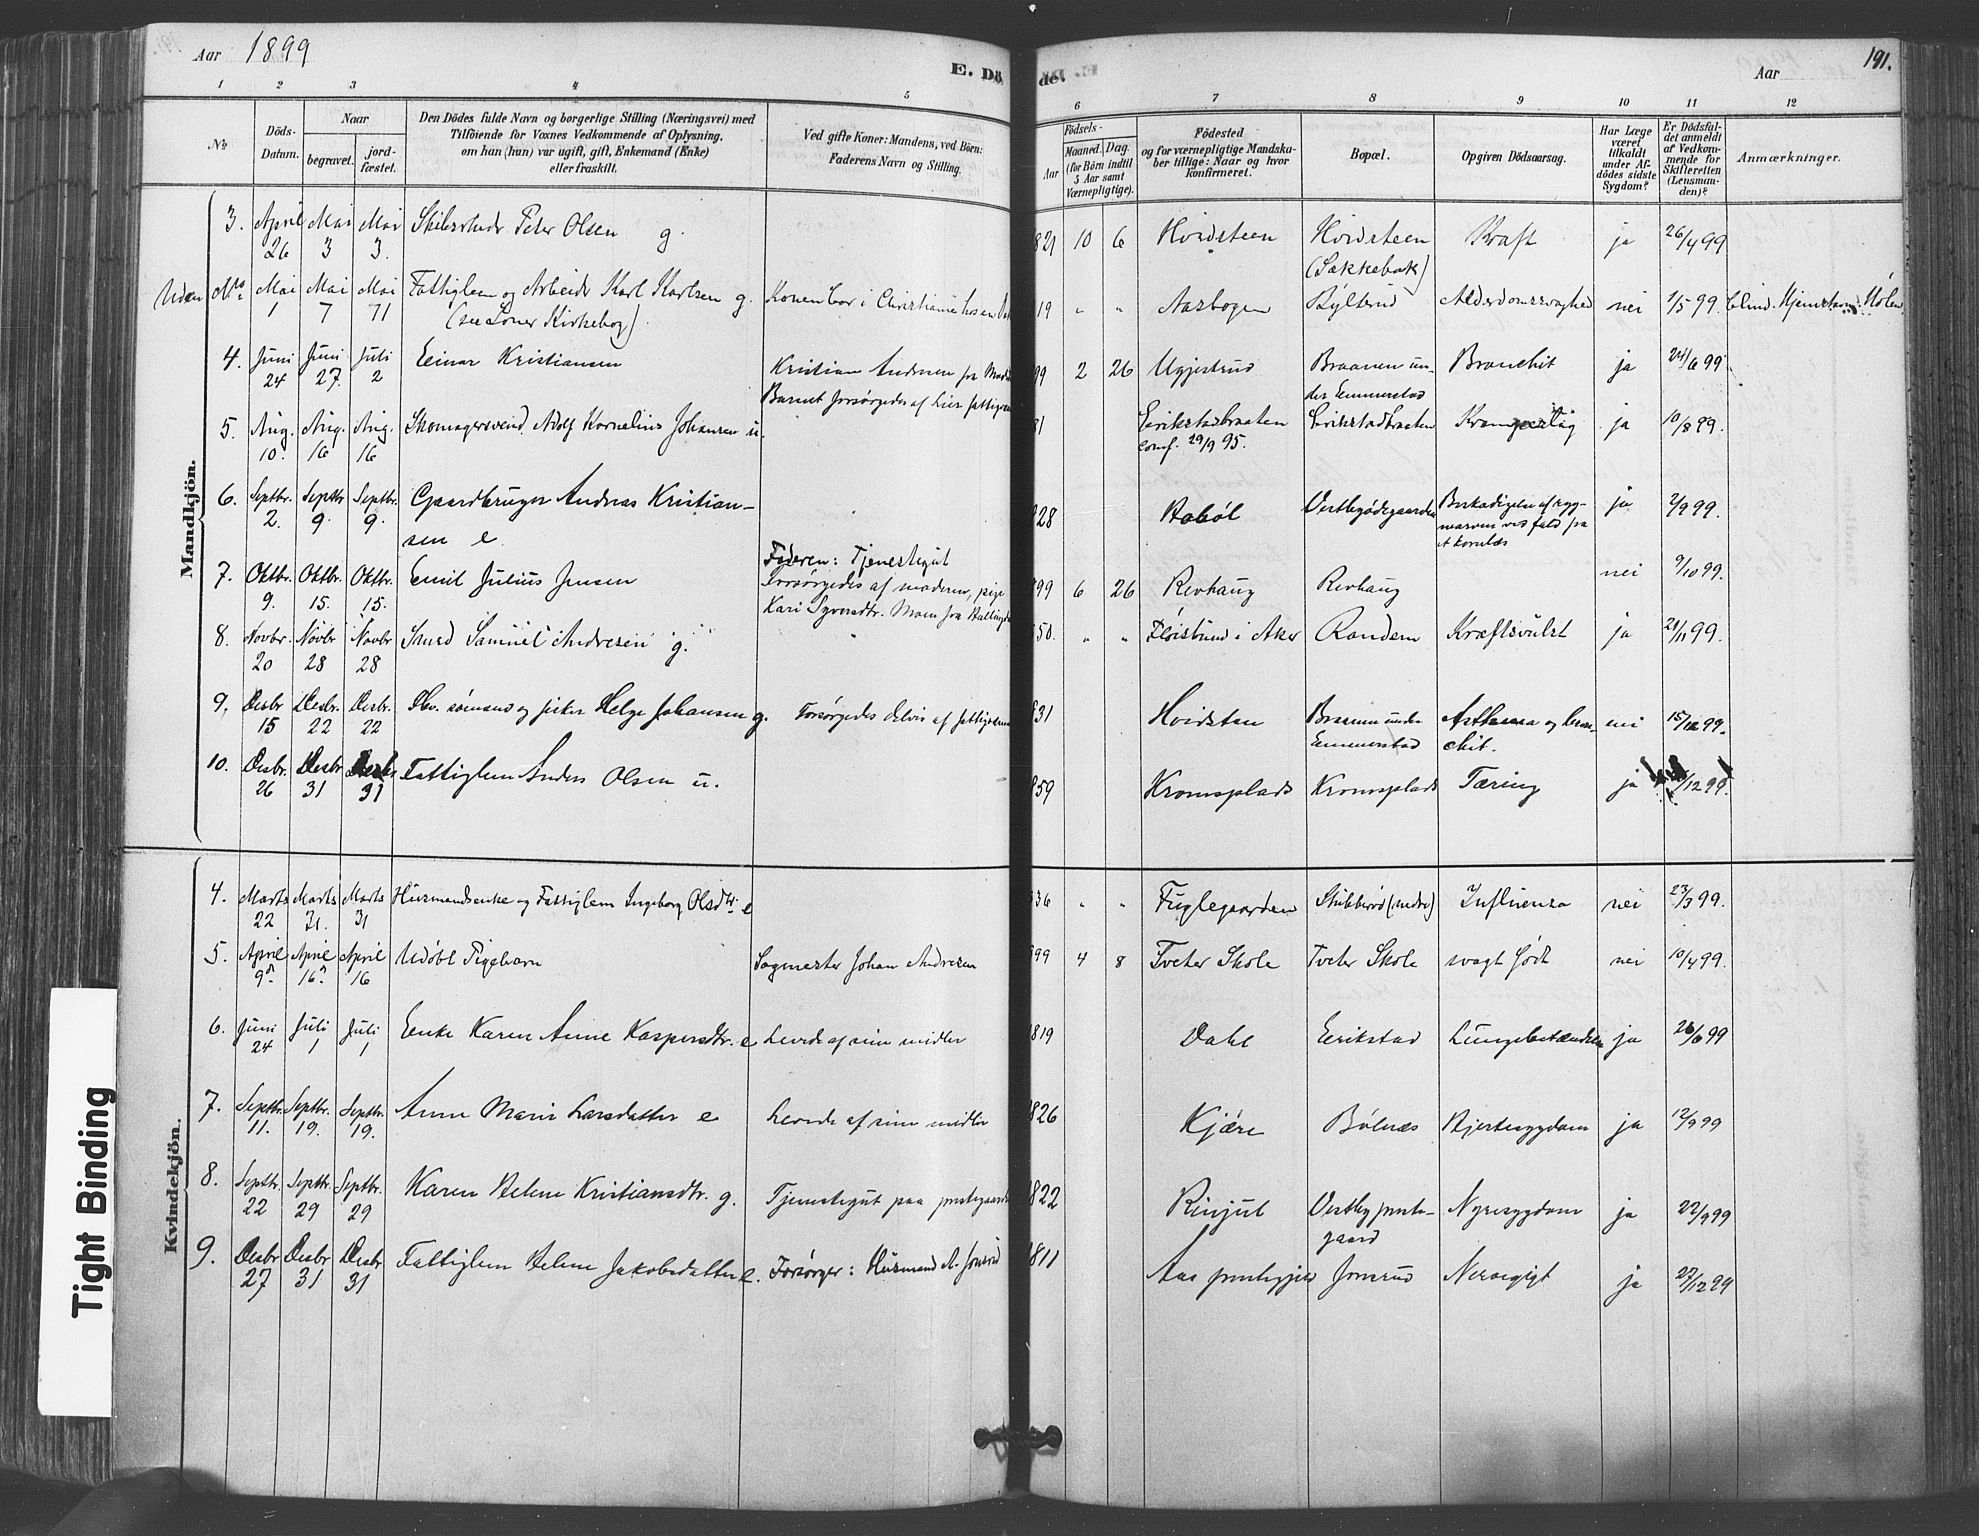 Aar 1899
E. Dö
de.
Aar
191.
1 2 3 4 5 6 7 8 9 10 11 12
No
Döds-
Datum.
Naar
begravet.
jord-
fæstet.
Den Dödes fulde Navn og borgerlige Stilling (Næringsvei) med
Tilföiende for Voxnes Vedkommende af Oplysning,
om han (hun) var ugift, gift, Enkemand (Enke)
eller fraskilt.
Ved gifte Koner: Mandens, ved Börn:
Faderens Navn og Stilling.
Födsels-
Aar
Maaned.
Dag.
(for Börn indtil
5 Aar samt
Værnepligtige).
Födested
og for værnepligtige Mandska-
ber tillige: Naar og hvor
konfirmeret.
Bopæl.
Opgiven Dödsaarsag.
Har Læge
været
tilkaldt
under Af-
dödes sidste
Sygdom?
Er Dödsfal-
det anmeldt
af Vedkom-
mende for
Skifteretten
(Lensman-
den)?
Anmærkninger.
Mandkjön.
3. April 26 Mai 3 Mai 3. Peter Olsen g. 821 10 6 Hvidsteen Hvidsteen (Sækkebak) Kræft ja 26/4 99
Uden No. Mai 1 Mai 7 Mai 71 Fattiglem og Arbeider Karl Karlsen g. Konen bor i Christiania hos en 19 " " Aasbogen Alderdomssvaghed nei 1/5 99. blind. Hjemstavn: Hølen
(se Soner Kirkebog)
4. Juni 24 Juni 27. Juli 2 Einar Kristiansen Kristian Andersen fra 99 2 26 Ugjestrud Braanen un-
der Emmerstad Bronchit ja 24/6 99
Barnet forsørgedes af Lier fattigv
5. Aug. 10. Aug. 16 Aug. 16 Skomagersvend. Adolf Kornelius Johansen u. 81 Eirikstadbraaten Eirikstadbraaten ja 10/8 99.
conf. 29/9 95.
6. Septbr. 2. Septbr 9. Septbr. 9. Gaardbruger Andreas Kristian-
sen e 828 Rabøl Beskadigelse af ryg-
marven ved fald fra
et kornlæs ja 2/9 99.
7. Oktbr. 9. Oktbr. 15. Oktbr. 15. Emil Julius Jensen Faderen: Tjenestegut
Forsørgedes af moderen, pige
Kari Syversdtr. Moen fra Hallingd 899 6 26 Revhaug Revhaug nei 9/10 99.
8. Novbr. 20 Novbr 28 Novbr 28 Smed Samuel Andresen g. 850. " " i Aker Randem Kræftsvulst ja 21/11 99.
9. Desbr 15 Desbr. 22 Desbr. 22 Fhv. sømand og fisker Helge Johansen g. Forsørgedes delvis af fattigvæsen 831 Hvidsten Braanen under
Emmerstad Asthma og bron-
chit. nei 15/12 99.
10. Desbr. 26 Desbr 31 Desbr 31 Fattiglem Anders Olsen u. 859 Kromsplads Kromsplads Tæring ja /12 99.
Kvindekjön.
4. Marts 22 Marts 31. Marts 31 Husmandsenke og Fattiglem Ingeborg Olsdtr. e 836 " " Fuglegaarden Stubberød (nedre) Influenza nei 23/3 99.
5. April 9. April 16. April 16 Udøbt Pigebarn Sagmester Johan Andresen 899 4 8 Tveter Skole Tveter Skole svagt født nei 10/4 99.
6. Juni 24 Juli 1 Juli 1 Enke Karen Anne Kaspersdtr. e Levede af sine midler 1819 Dahl Eirikstad Lungebetændelse ja 26/6 99
7. Septbr. 11. Septbr. 19. Septbr. 19. Anne Marie Larsdatter e Levede af sine midler 1826 Kjære Bølnæs Hjertesygdom ja 12/9 99
8. Septbr. 22 Septbr. 29 Septbr. 29 Karen Helene Kristiansdtr. g. Tjenestegut paa prestegaarden 1822 Vestby preste-
gaard Nyresygdom ja 22/9 99
9. Desbr 27 Desbr 31 Desbr 31 Fattiglem Helene Jakobsdatter e. Forsørger: Husmand A. Jonsrud 1811 Aas prestegjeld Jonsrud Nervegigt ja 27/12 99
Tight Binding